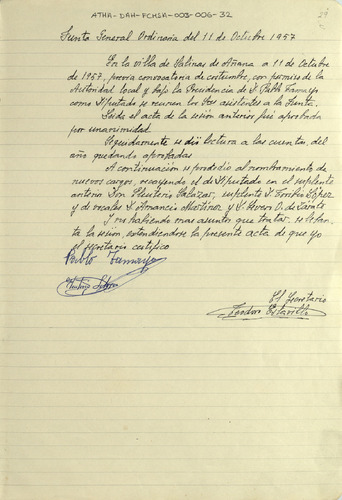 ATHA-DAH-FCHSA-003-006-32
Junta General Ordinaria del 11 de Octubre 1957
En la villa de Salinas de Añana a 11 de Octubre
de 1957, previa convocatoria de costumbre, con permiso de la
Autoridad local y bajo la Presidencia de D. Pablo Tamayo
como Diputado se reunen los Sres asistentes a la Junta.
Leida el acta de la sesion anterior fué aprobada
por unanimidad.
Seguidamente se dió lectura a las cuentas, del
año quedando aprobadas
A continuacion se procedió al nombramiento de
nuevos cargos, recayendo el de Diputado en el suplente
anterior Don Eleuterio Salazar, suplente D. López
y de vocales D. Amancio Martinez y D. de
Y no habiendo mas asuntos que tratar, se levan-
ta la sesion, extendiendose la presente acta de que yo
el secretario certifico
Pablo Tamayo
El Secretario
Teodoro